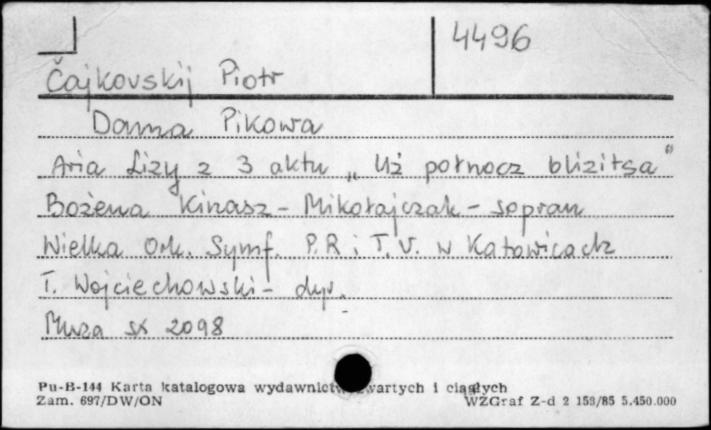 4496
Čajkovskij Piotr
Dama Pikowa
Aria Lizy z 3 aktu „Už połnocz blizitsa"
Bożena Kinasz-Mikołajczak - sopran
Wielka Ork. Symf. P.R i T.V. w Katowicach
T. Wojciechowski - dyr.
Muza sx 2098
Pu-B-144 Karta katalogowa wydawnictw zwartych i ciągłych
Zam. 697/DW/ON WZGraf Z-d 2 153/85 5.450.000